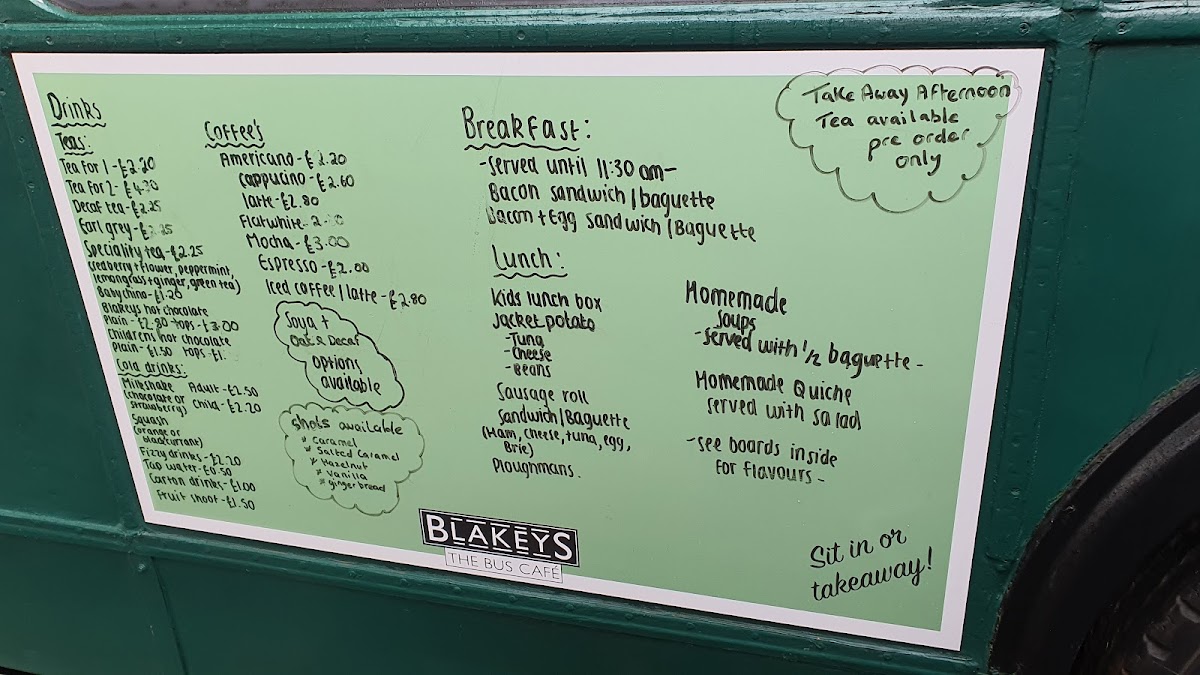 Drinks
Teas:
Tea for 1 - £2.20
Tea for 2 - £4.20
Decaf tea - £2.25
Earl grey - £2.25
Speciality tea - £2.25
(redberry + flower, peppermint,
lemongrass + ginger, green tea)
Babychino - £1.20
Blakeys hot chocolate
Plain - £2.80 tops - £3.00
Childrens hot chocolate
Plain - £1.50 tops - £1.
Cold drinks:
Milkshake Adult - £2.50
(chocolate or Child - £2.20
strawberry)
Squash
(orange or
blackcurrant)
Fizzy drinks - £2.20
Tap water - £0.50
Carton drinks - £1.00
Fruit shoot - £1.50
Coffee's
Americano - £2.20
Cappucino - £2.60
latte - £2.80
Flatwhite
Mocha - £3.00
Espresso - £2.00
Iced coffee / latte - £2.80
Soya +
Oat & Decaf
options
available
Shots available
* Caramel
* Salted Caramel
* Hazelnut
* Vanilla
* gingerbread
Breakfast:
- Served until 11:30 am -
Bacon sandwich / baguette
Bacon + Egg sandwich / Baguette
Lunch:
Kids lunch box
Jacket potato
- Tuna
- Cheese
- Beans
Sausage roll
Sandwich / Baguette
(Ham, cheese, tuna, egg,
Brie)
Ploughmans.
Homemade
soups
- served with 1/2 baguette -
Homemade Quiche
served with salad
- see boards inside
for flavours -
Take Away Afternoon
Tea available
pre order
only
BLAKEYS
THE BUS CAFÉ
Sit in or
takeaway!